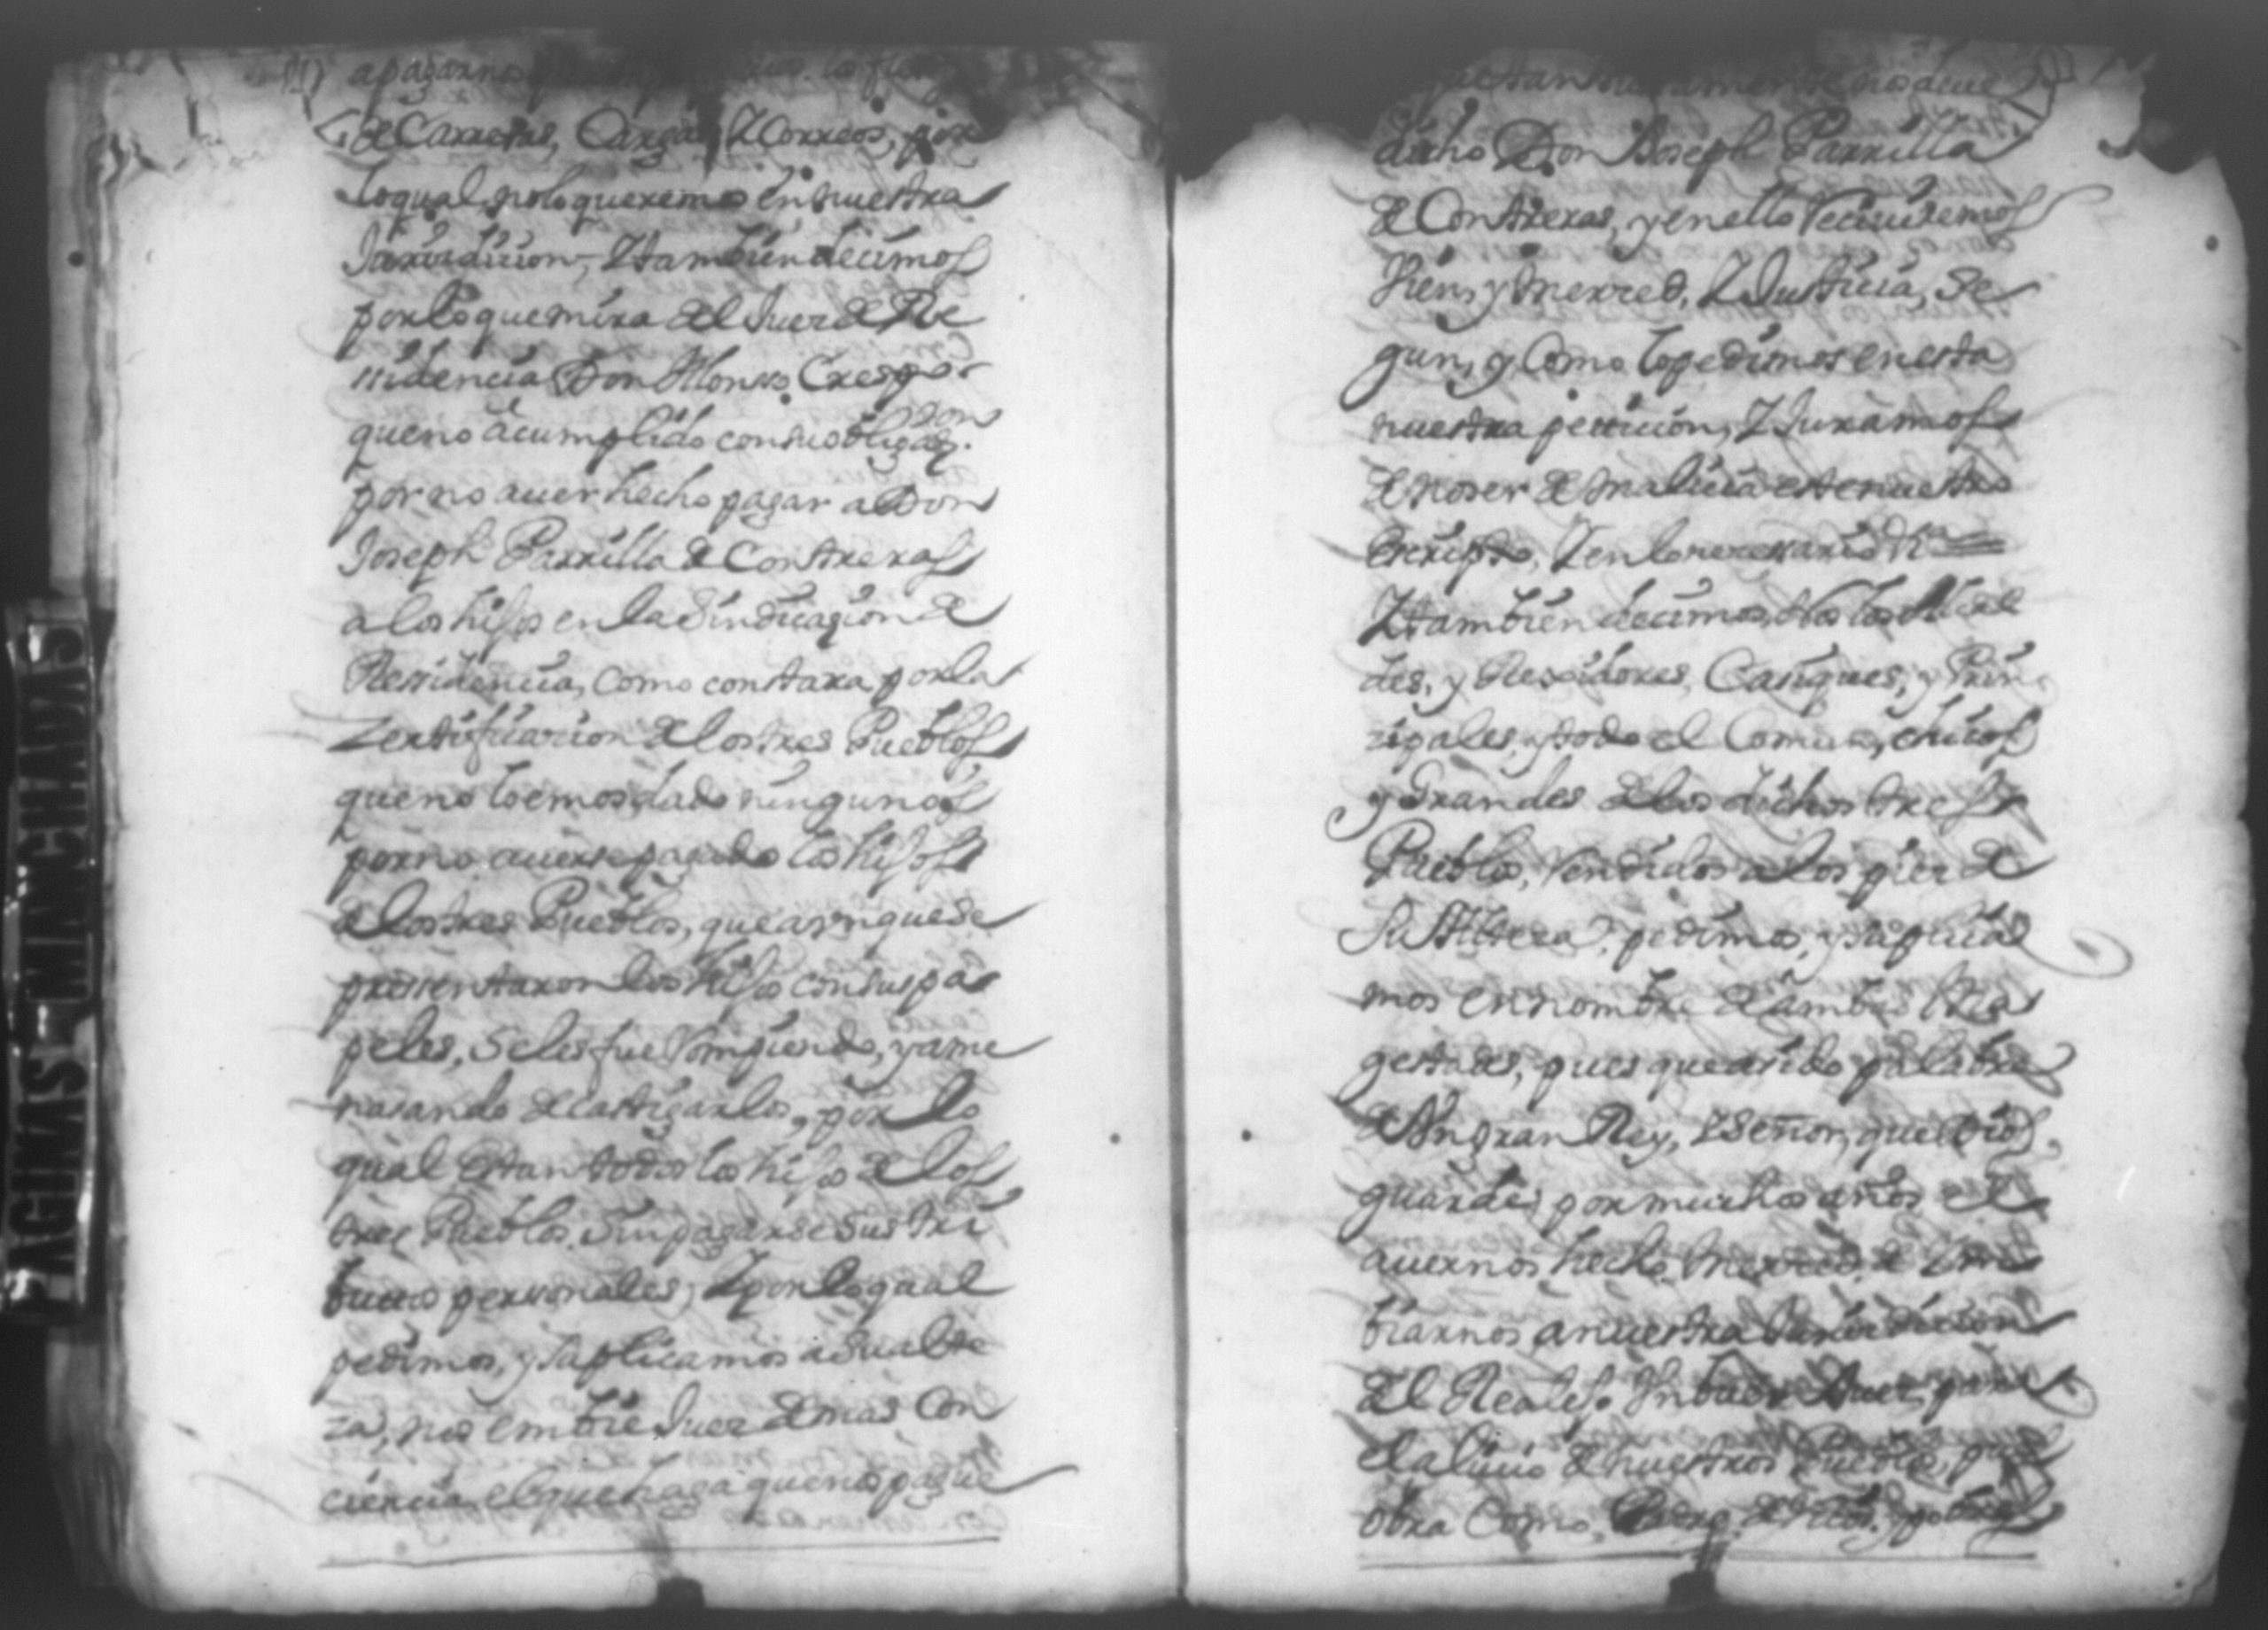 apagarnos
de Carretas, Cargas, Y Correos, por
loqual, nolo queremos en nuestra
Jurisdiccion, Y tambien decimos
por lo que mira al Juez de Re
ssidencia Don Alonsso Crespo
que no â cumplido con su obligaz.on
por no auer hecho pagar a Don
Joseph Parrilla de Contreras
a los hijos en la Sindicazion de
Ressidencia, como constara por la
Zertificacion de los tres Pueblos
que no lo emos dado ningunos
por no auerse pagado los hijos
de los tres Pueblos, que aynque se
pressentaron los hijos con sus pa
peles, se les fue Rompiendo, y ame
nasando de castigarlos, por lo
qual estan todos los hijos de los
tres Pueblos sin pagarse sus tri
butos personales, Y por lo qual
pedimos, y suplicamos a Su Alte
za, nos embie Juez de mas Con
ciencia, el que haga que nos pague
dicho Don Joseph Parrilla
de Contreras, y en ello Reciuiremos
Vien, y merced, Y Justicia, Se
gun, y Como lo pedimos en esta
nuestra peticion, Y Juramos
de no ser de malicia este nuestro
escripto, Y en lo nezessario &.a
Y tambien decimos, Nos los Alcal
des, y Rexidores, Caciques, y Prin
zipales, y todo el Comun, chicos
y Grandes de los dichos tres
Pueblos, Rendidos a los pies de
Su Alteza, pedimos, y suplica
mos en nombre de ambas Ma
gestades, pues que a sido palabra
de Un gran Rey, Y Señor, que Dios
guarde, por muchos años el
auernos hecho merced, de em
biarnos a nuestra Jurisdiccion
del Realejo Un buen Juez, para
el aliuio de nuestros Pueblos, que
obra Como, Padre de pobres